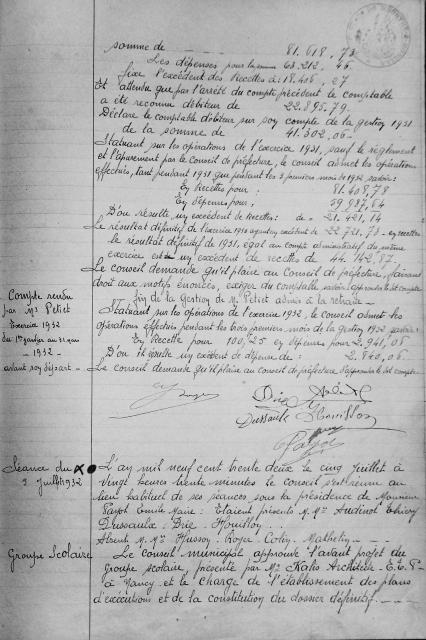 somme de 81.618,73
Les dépenses pour la somme 63.212,46
fixe l'excédent des Recettes à : 18.406,27
Et attendu que par l'arrêté du compte précédent le comptable
a été reconnu débiteur de 22.895.79.
Déclare le comptable débiteur sur soy compte de la gestioy 1931
de la somme de 41.302,06
Statuant sur les opérations de l'exercice 1931, sauf le règlement
et l'apurement par le Conseil de préfecture, le conseil admet les opérations
effectuées, tant pendant 1931 que pendant les 3 premiers mois de 1932 savoir :
Ey Recettes pour : 81.408,78
Ey Dépenses pour, 59.987,64
D'où résulte, uy excédent de Recettes : de 21.421,14
Le résultat définitif de l'exercice 1930 ayant excédent de 22.721,73 ey recettes
le résultat définitif de 1931, égal au compte administratif du même
exercice est uy excédent de recettes de 44.142,87.
Le conseil demande qu'il plaise au Conseil de préfecture, faisant
droit aux motifs énoncés, exiger du comptable
fiy de la Gestioy de Mr Petict admis à la retraite
Compte rendu
par Mr Petict
Exercice 1932
du 1er janvier au 31 mars
- 1932 -
avant soy départ -
Statuant sur les opérations de l'exercice 1932, le conseil admet les
opérations effectuées pendant les trois premiers mois de la gestioy 1932 savoir :
Ey Recette pour 100,25 ey dépense pour 2.941,06
D'où il résulte uy excédent de dépense de : 2.840,06
Le conseil demande qu'il plaise au Conseil de préfecture
Brie
Dussaulx Houilloy
Payot
Séance du
5 Juillet 1932
L'ay mil neuf cent trente deux le cinq Juillet à
vingt heures trente minutes le conseil s'est réuni au
lieu habituel de ses séances sous la présidence de Monsieur
Payot Emile Maire : Etaient présents M. Mrs Audinot Thiery
Dussaulx - Brie - Houilloy .
Absent M. Mrs Hussoy - Roger Coley - Mathieu -
Groupe Scolaire
Le Conseil municipal approuve l'avant projet du
groupe scolaire, présenté par Mr Kahs Architecte - E.t.P.
à Nancy et le charge de l'établissement des plans
d'exécutions et de la constitution du dossier définitif.